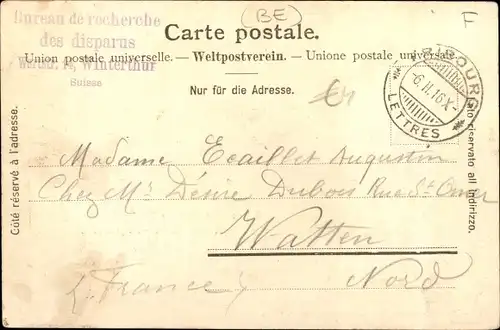 Bureau de recherche
des disparus
Winterthur
Suisse
(BE)
F
Carte postale.
Union postale universelle. — Weltpostverein. — Unione postale universale
Nur für die Adresse.
FRIBOURG
6.II.16X-
LETTRES
Côté réservé à l'adresse.
lato riservato all indirizzo.
Madame Ecaillet Augustin
Chez Mr Désiré Dubois Rue St Omer
Watten
Nord
(France)